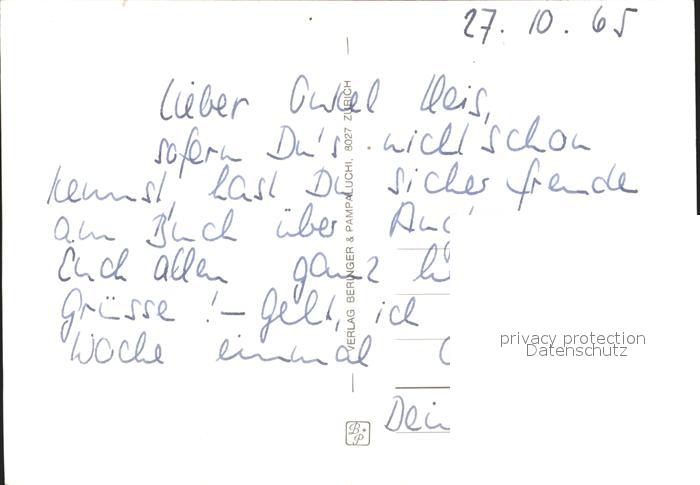 27. 10. 65
Lieber Onkel Heis,
sofern Du's nicht schon
kennst, hast Du sicher freude
am Buch über
Euch allen ganz
Grüsse! – Gell, ich
Woche einmal
Dein
VERLAG BERINGER & PAMPALUCHI, 8027 ZÜRICH
B+P
privacy protection
Datenschutz